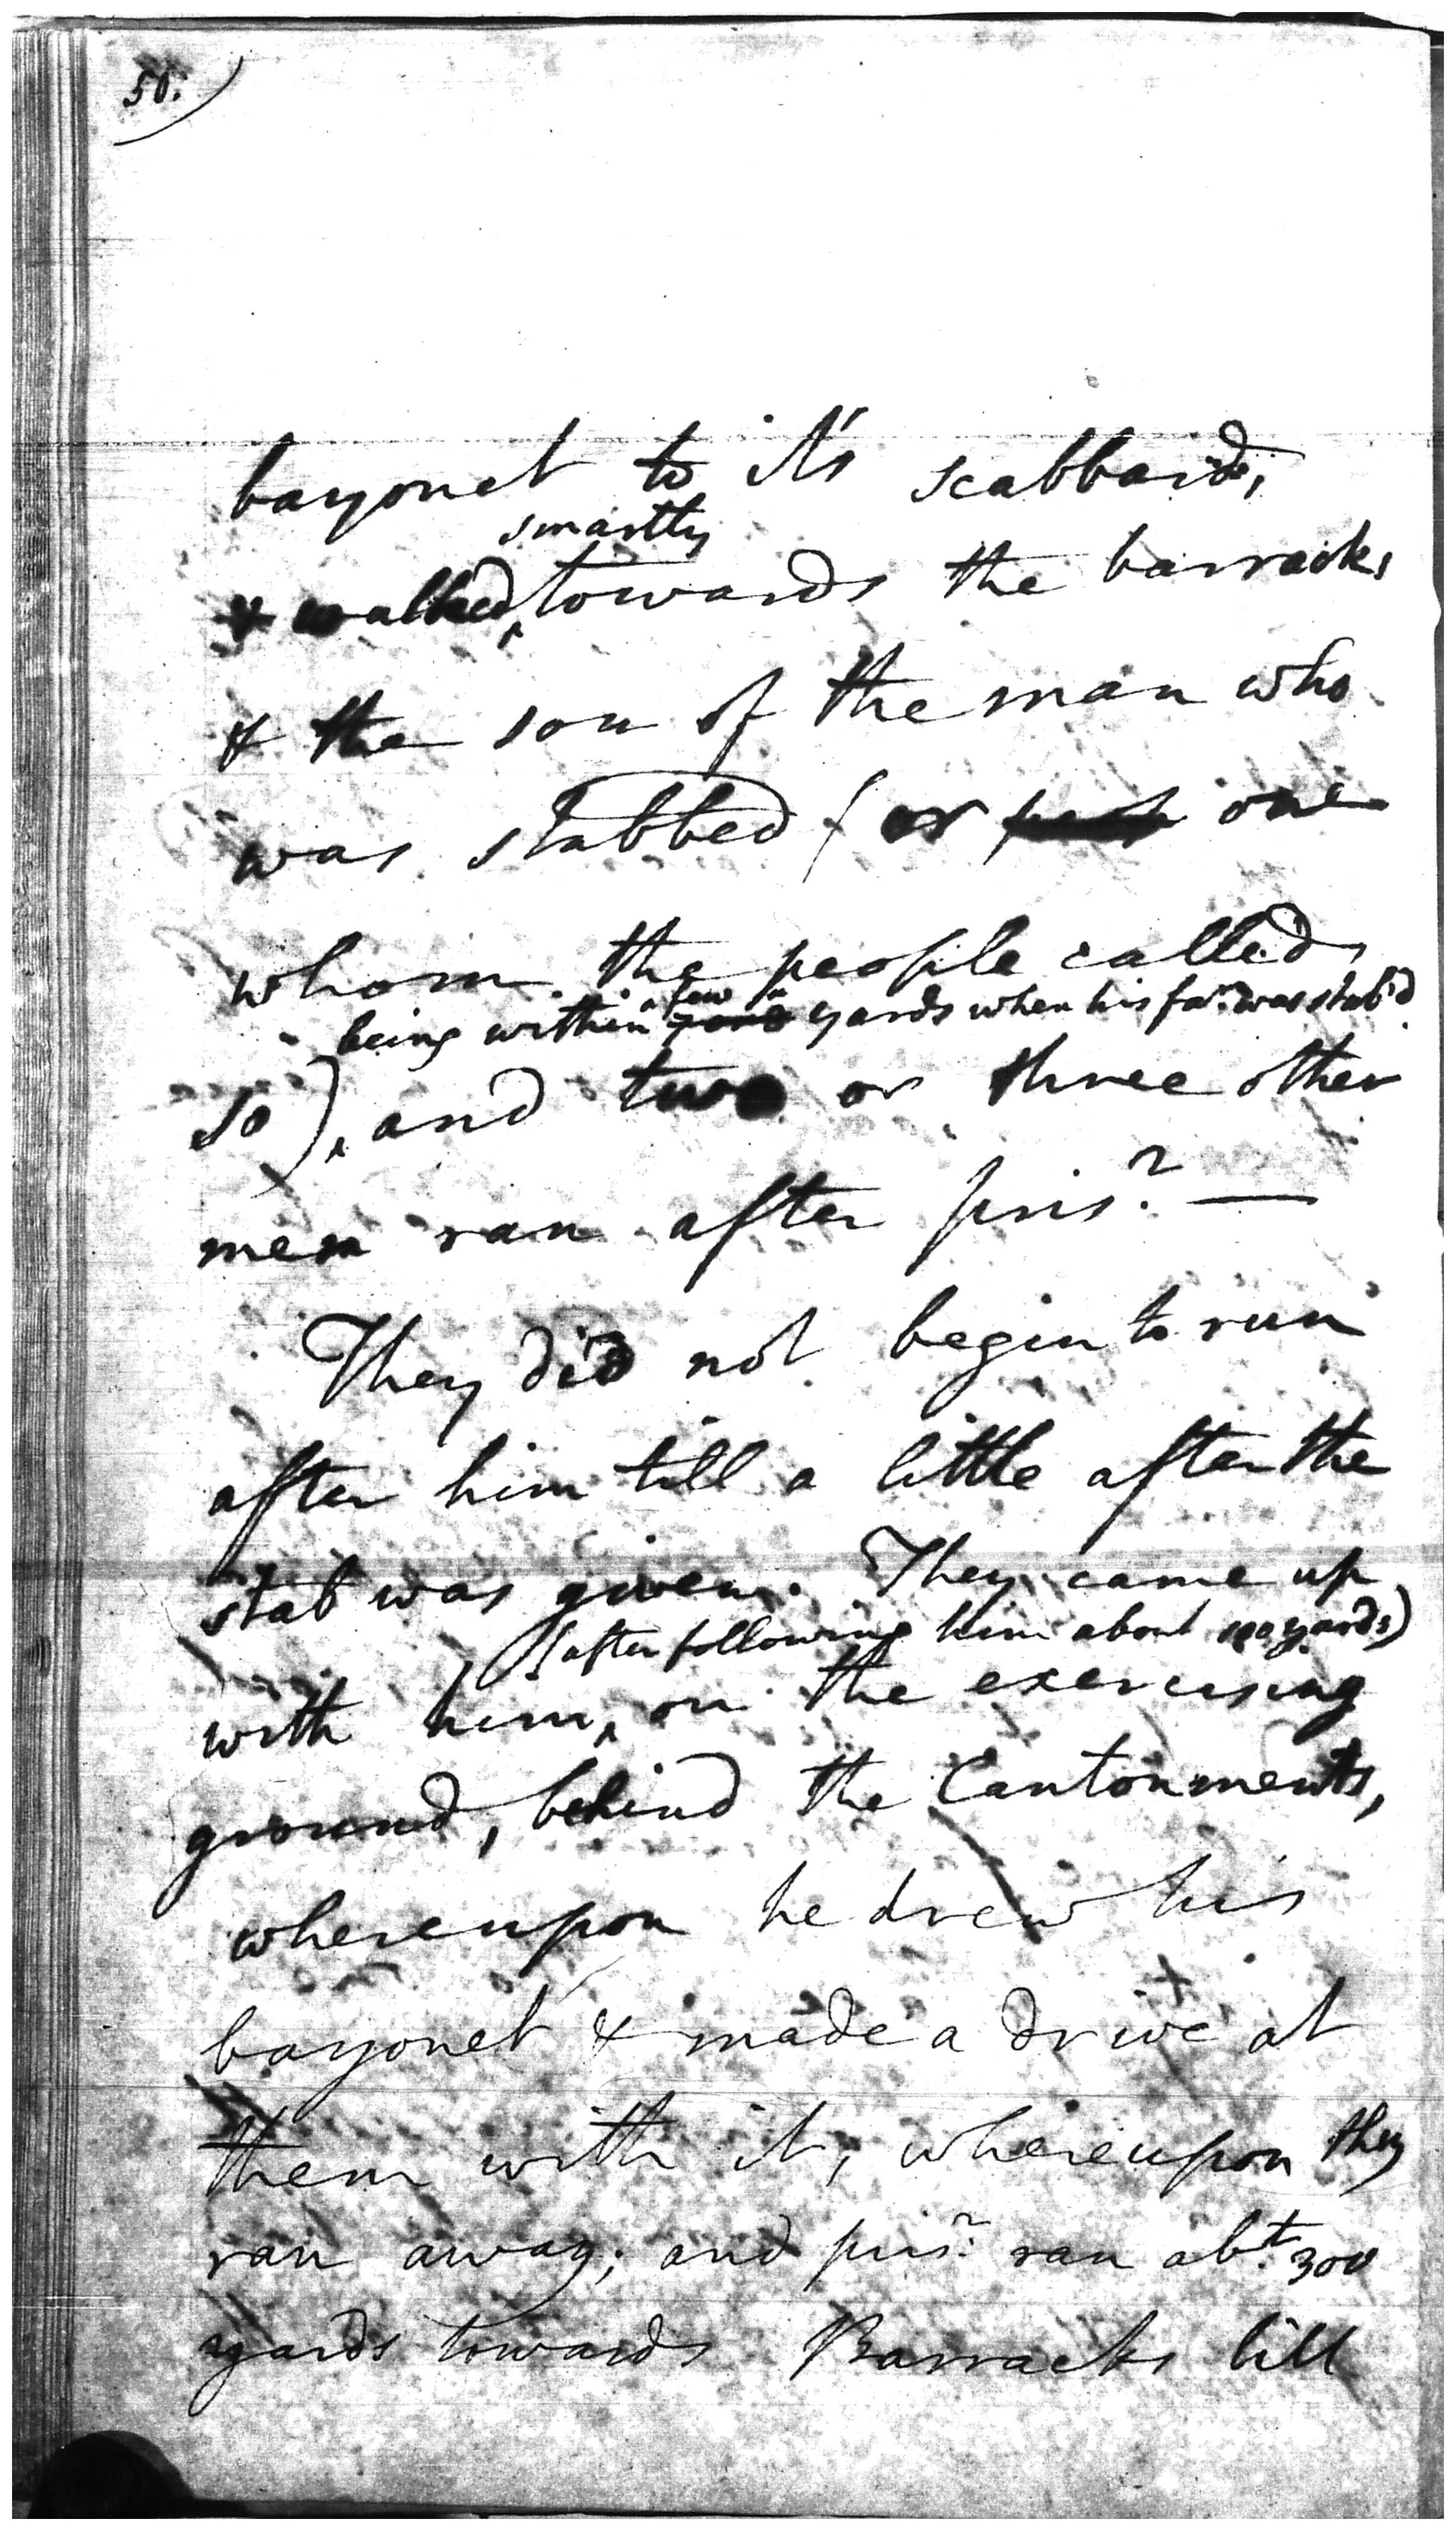 50.
bayonet to it's scabbard,
smartly
& walked towards the barracks
& the son of the man who
was stabbed (or one
whom the people called
being within a few yards when his far. was stab'd
so), and two or three other
men ran after pris.r —
They did not begin to run
after him till a little after the
stab was given. They came up
(after following him about 100 yards)
with him, on the exercising
ground, behind the Cantonments,
whereupon he drew his
bayonet & made a drive at
them with it, whereupon they
ran away; and pris.r ran ab.t 300
yards towards Barracks till